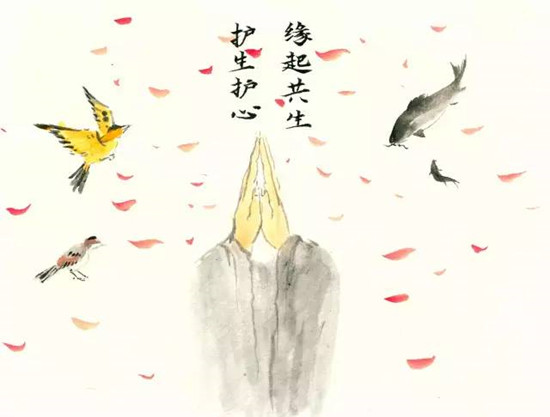 缘起共生
护生护心